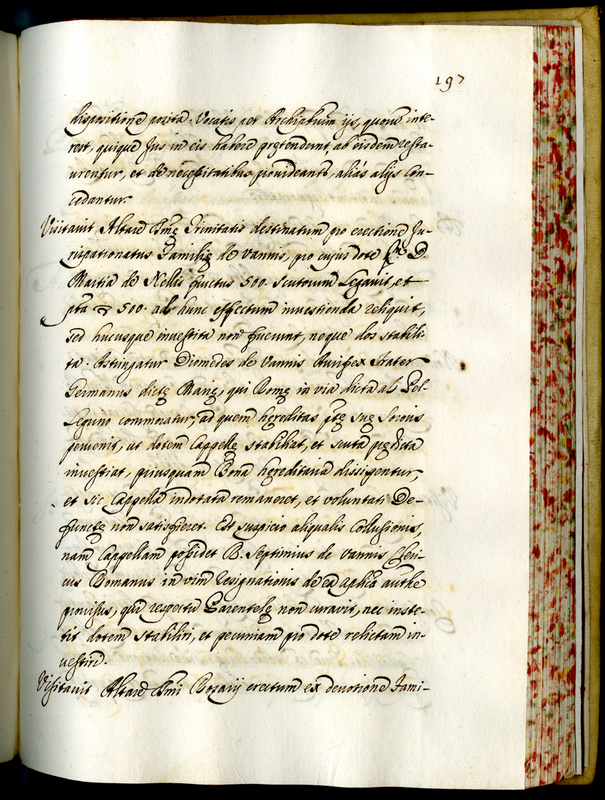 197
dispositione posita. Vocatis per Archipbrum ijs, quorū inte-
rest, quique Jus in eis habere prętendunt, ab eisdem resta-
urentur, et de necessitatibus provideantr, alias alijs con-
cedantur.
Visitavit Altare Smę Trinitatis destinatum pro erectione Ju-
rispationatus Familię de Vannis, pro cujus dote D.
Martia de Nellis fructus 500. scutorum Legavit, et
pta ▽ 500. ad hunc effectum investienda reliquit,
sed hucusque investita non fuerunt, neque dos stabili-
ta. Astringatur Diomedes de Vannis Aurifex Frater
Germanus dictę Martię, qui Romę in via dicta al Pel-
legrino commoratur, ad quem hęreditas ptę suę sororis
pervenit, ut dotem Cappellę stabiliat, et scuta prędicta
investiat, priusquam Bona hęreditaria dissipentur,
et sic Cappella indotata remaneret, et voluntati De-
functę non satisfieret. Est suspicio aliqualis Collusionis,
nam Cappellam possidet D. Septimius de Vannis Cleri-
cus Romanus in vim resignationis de ea aplica authe
provisus, qui respectu Parentelę non curavit, nec inste-
tit dotem stabiliri, et pecuniam pro dote relictam in-
vestire.
Visitavit Altare Smi Rosarij erectum ex devotione Fami-